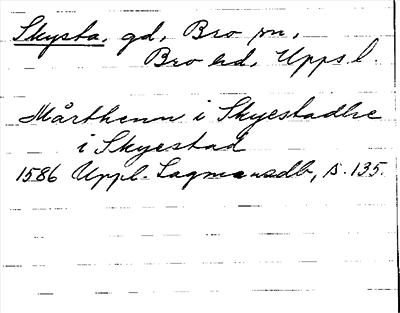 Skysta, gd, Bro sn,
Bro hd, Upps. l.
Mårthenn i Skyestadhe
i Skyestad
1586 Uppl. Lagmansdb, s. 135.